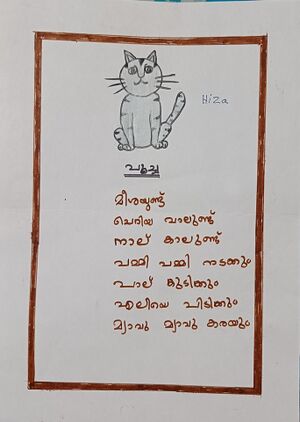 Hiza
പൂച്ച
മീശയുണ്ട്
ചെറിയ വാലുണ്ട്
നാല് കാലുണ്ട്
പമ്മി പമ്മി നടക്കും
പാല് കുടിക്കും
എലിയെ പിടിക്കും
മ്യാവു മ്യാവു കരയും